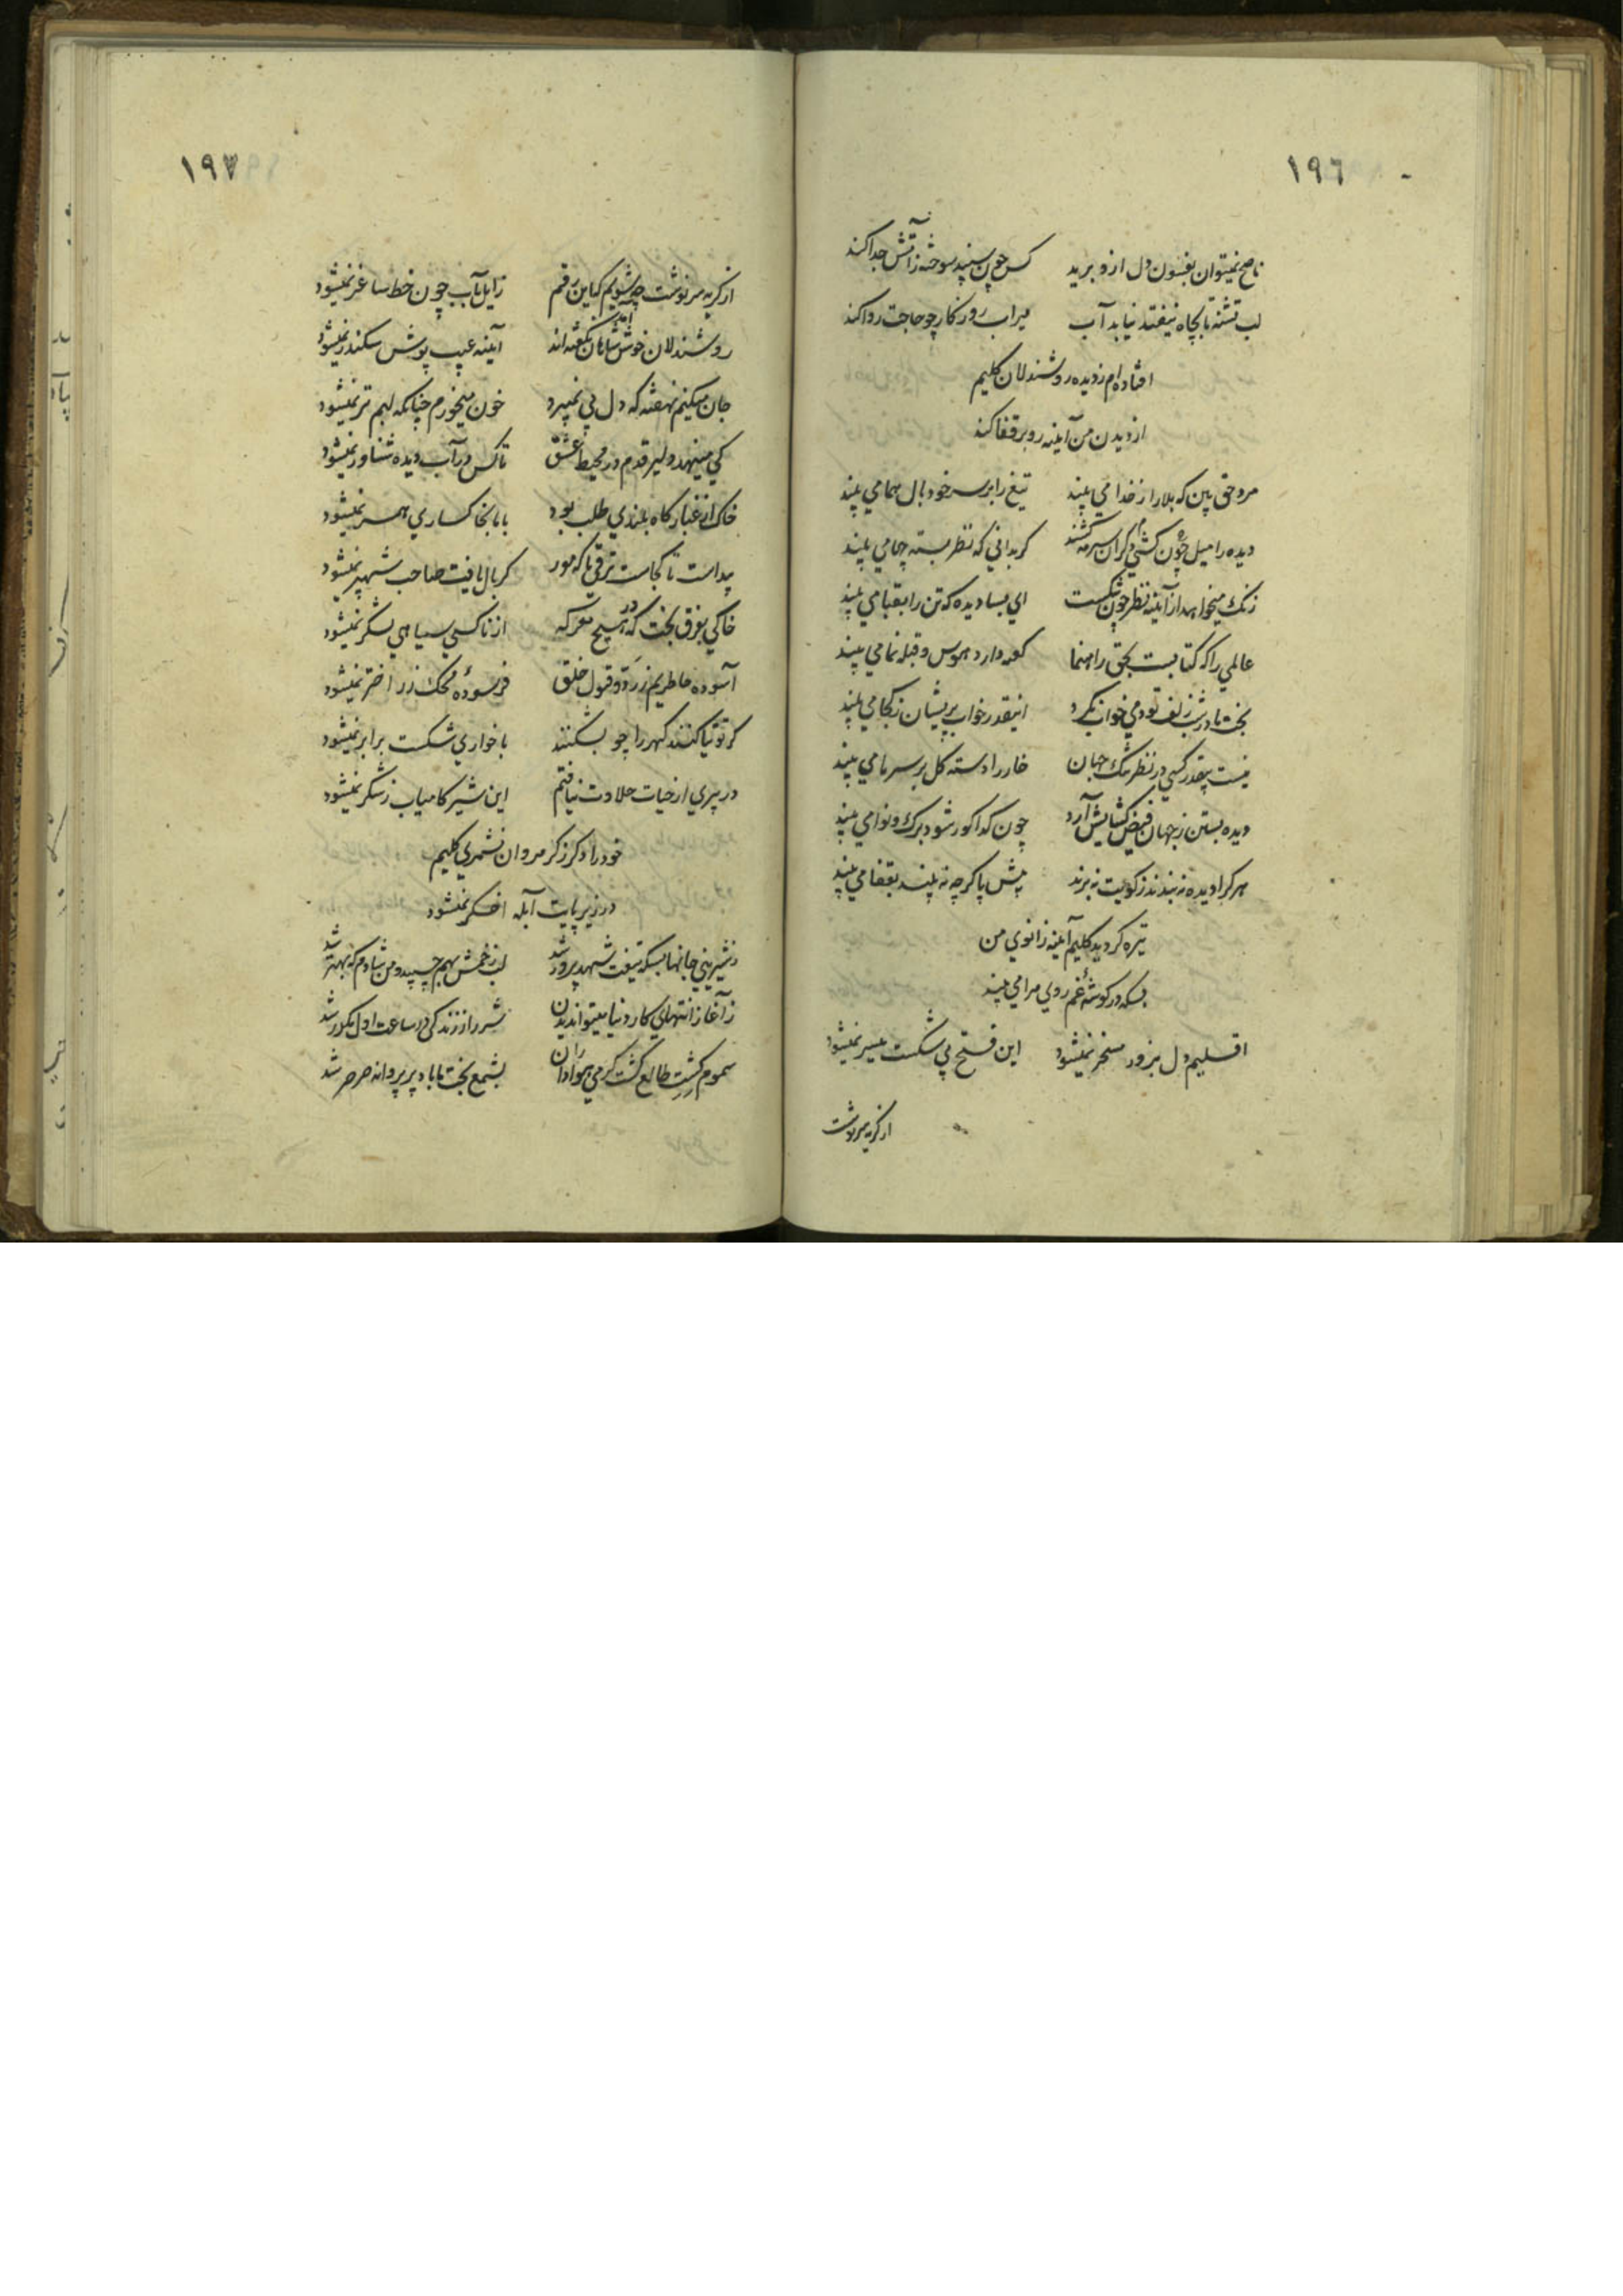 ١٩٦
ناصح نمیتوان بفسون دل ازو برید کس چون سپند سوخته ز آتش جدا کند
لب تشنه تا بچاه نیفتد نیابد آب میراب روزکار چو حاجت روا کند
افتاده‌ام ز دیده روشندلان کلیم
از دیدن من آینه رو بر قفا کند
مرد حق بین که بلا را ز خدا می بیند تیغ را بر سر خود بال هما می بیند
دیده را میل چون کشتی دکران سرمه کشند کر بدانی که نظر بسته چها می بیند
زنک میخواهد از آینه نظر چون شکست ای بسا دیده که تن را بقبا می بیند
عالمی را که کتابست بحق راهنما کعبه دارد هوس و قبله نما می بیند
بخت ما در شب زلف تو دمی خواب نکرد اینقدر خواب پریشان ز کجا می بیند
نیست بیقدر کسی در نظر تنک جهان خار را دسته کل بر سر ما می بیند
دیده بستن ز جهان فیض کشایش آرد چون کدا کور شود برک و نوا می بیند
هر کرا دیده نه بندند ز کویت نبرند پیش پا کرچه نه بیند بقفا می بیند
تیره کردید کلیم آینه زانوی من
بسکه در کوشه غم روی مرا می بیند
اقلیم دل بزور مسخر نمیشود این فتح بی شکست میسر نمیشود
از کریه سرنوشت
١٩٧
از کریه سرنوشت چه شویم کاین رقم زایل بآب چون خط ساغر نمیشود
روشندلان خوش آمد شاهان نکفته‌اند آینه عیب پوش سکندر نمیشود
جان میکنم نهفته که دل پی نمیبرد خون میخورم چنانکه لبم تر نمیشود
کی مینهد دلیر قدم در محیط عشق تا کس در آب دیده شناور نمیشود
خاک از غبار کاه بلندی طلب بود با ما بخاکساری همسر نمیشود
پیداست تا کجاست ترقی ما که مور کر بال یافت صاحب شهپر نمیشود
خاکی بفرق بخت که در هیچ معرکه از ناکسی سیاهی لشکر نمیشود
آسوده خاطریم ز رد و قبول خلق فرسوده محک زر اختر نمیشود
کر توتیا کنند کهر را چو بشکنند با خواری شکست برابر نمیشود
در پیری از حیات حلاوت نیافتم این شیر کامیاب ز شکر نمیشود
خود را دکر ز کرم روان نشمری کلیم
در زیر پایت آبله اخکر نمیشود
ز شیرینی جانها بسکه تیغت شهد پرور شد لب زخمش بهم چسپید و من شادم که بهتر شد
ز آغاز انتهای کار دنیا میتوان دیدن شرر را ز زندکی در ساعت اول مکدر شد
سموم کشت طالع کشت کرمی هواداران بشمع بخت ما باد پر پروانه صرصر شد